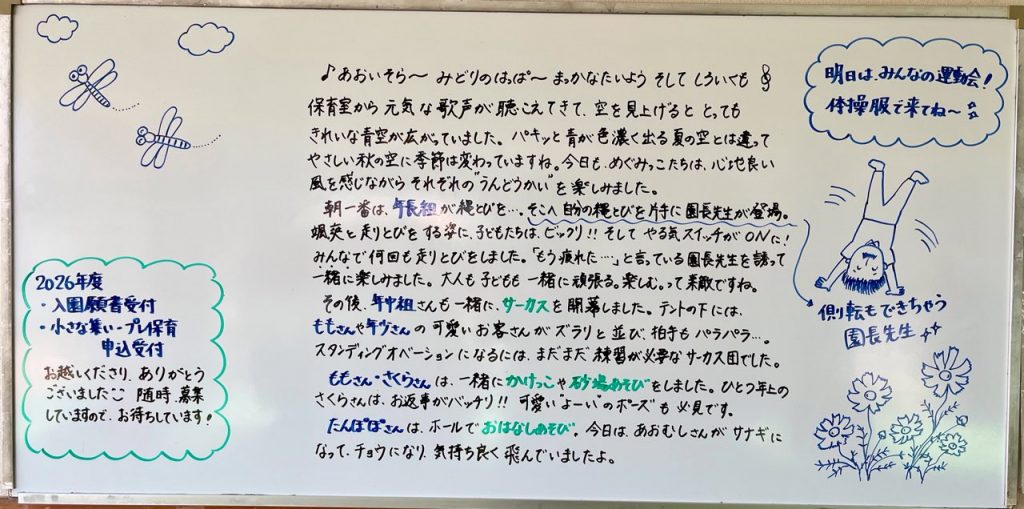 ♪あおいそら〜 みどりのはっぱ〜 まっかなたいよう そして しろいくも
保育室から 元気な歌声が 聴こえてきて、空を見上げると とっても
きれいな青空が広がっていました。パキッと青が色濃く出る夏の空とは違って
やさしい秋の空に季節は変わっていますね。今日も、めぐみっこたちは、心地良い
風を感じながら それぞれの"うんどうかい"を楽しみました。
朝一番は、年長組が縄とびを…。そこへ 自分の縄とびを片手に園長先生が登場。
颯爽と走りとびをする姿に、子どもたちは、ビックリ!! そして やる気スイッチがONに!
みんなで何回も走りとびをしました。「もう疲れた…」と言っている園長先生を誘って
一緒に楽しみました。大人も子どもも 一緒に頑張る。楽しむ。って素敵ですね。
その後、年中組さんも一緒に、サーカスを開幕しました。テントの下には、
ももさんや年少さんの 可愛いお客さんがズラリと並び、拍手もパラパラ…。
スタンディングオベーションになるには、まだまだ練習が必要なサーカス団でした。
ももさん・さくらさんは、一緒にかけっこや砂場あそびをしました。ひとつ年上の
さくらさんは、お返事がバッチリ!! 可愛い"よーい"のポーズも必見です。
たんぽぽさんは、ホールでおはなしあそび。今日は、あおむしさんがサナギに
なって、チョウになり、気持ち良く飛んでいましたよ。
明日は、みんなの運動会!
体操服で来てね〜
側転もできちゃう
園長先生
2026年度
・入園願書受付
・小さな集い・プレ保育
申込受付
お越しくださり、ありがとう
ございました 随時、募集
していますので、お待ちしています!